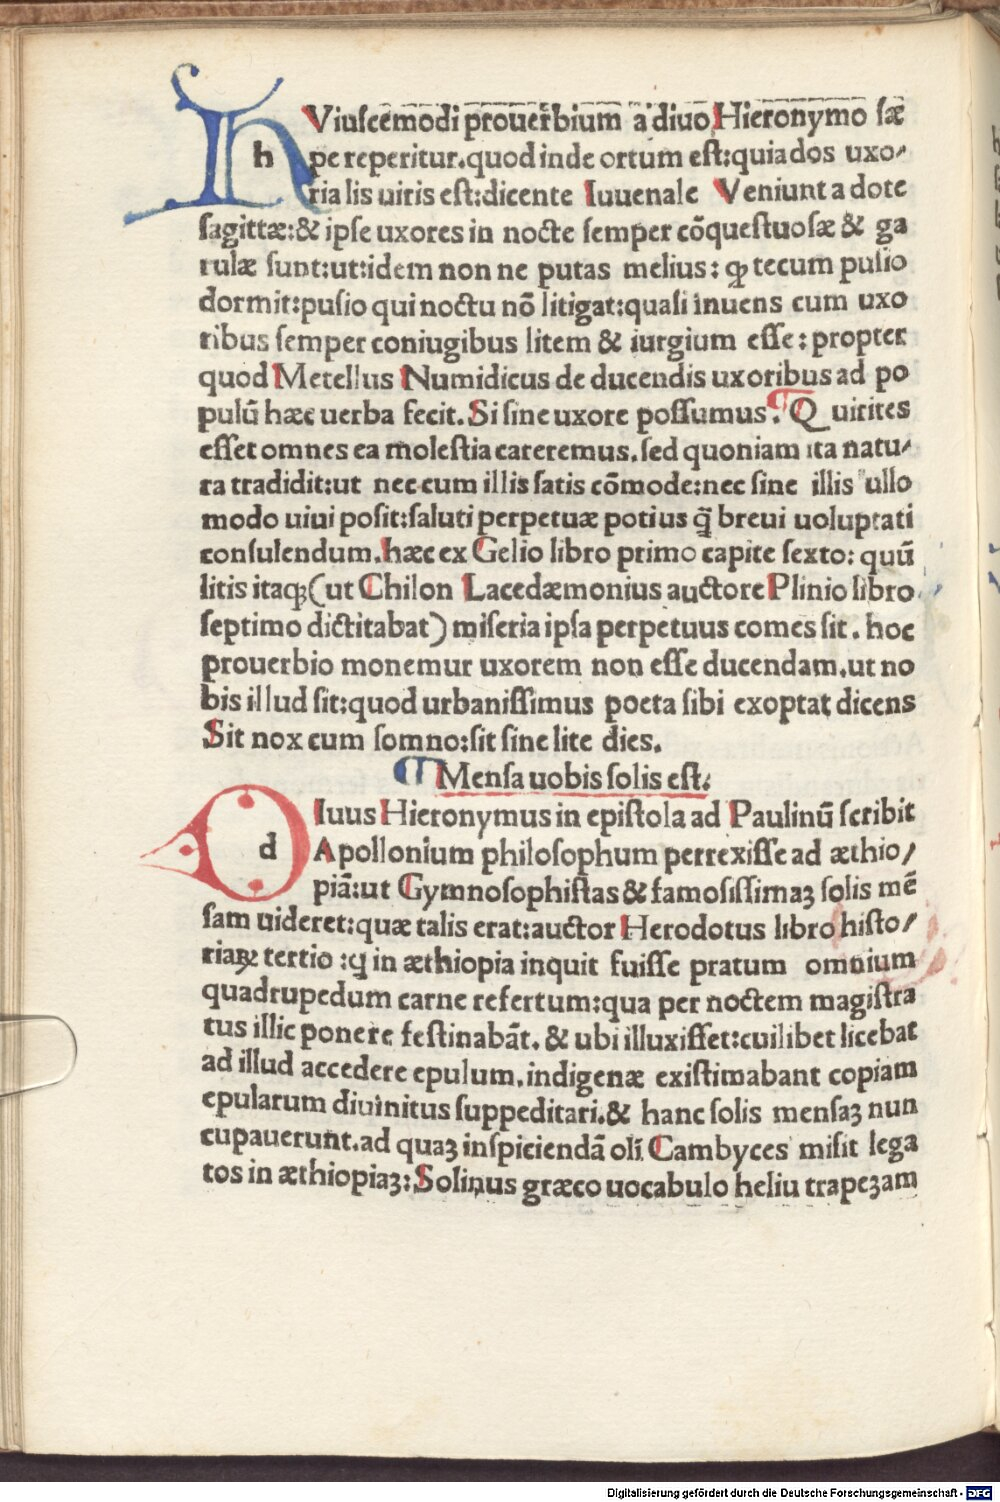 hViuſcemodi prouerbium a diuo Hieronymo ſæ
pe reperitur.quod inde ortum eſt:quia dos uxo-
ria lis uiris eſt:dicente Iuuenale Veniunt a dote
ſagittæ:& ipſe uxores in nocte ſemper cõqueſtuoſæ & ga
rulæ ſunt:ut:idem non ne putas melius: ꝙ tecum puſio
dormit:puſio qui noctu nõ litigat:quaſi inuens cum uxo
ribus ſemper coniugibus litem & iurgium eſſe: propter
quod Metellus Numidicus de ducendis uxoribus ad po
pulũ hæc uerba fecit. Si ſine uxore poſſumus. Quirites
eſſet omnes ea moleſtia careremus.ſed quoniam ita natu-
ra tradidit:ut nec cum illis ſatis cõmode:nec ſine illis ullo
modo uiui poſit:ſaluti perpetuæ potius q̃ breui uoluptati
conſulendum.hæc ex Gelio libro primo capite ſexto: quũ
litis itaqꝫ(ut Chilon Lacedæmonius auctore Plinio libro
ſeptimo dictitabat) miſeria ipſa perpetuus comes ſit. hoc
prouerbio monemur uxorem non eſſe ducendam.ut no
bis illud ſit:quod urbaniſſimus poeta ſibi exoptat dicens
Sit nox cum ſomno:ſit ſine lite dies.
¶ Menſa uobis ſolis eſt.
dIuus Hieronymus in epiſtola ad Paulinũ ſcribit
Apollonium philoſophum perrexiſſe ad æthio/
piã:ut Gymnoſophiſtas & famoſiſſimaꝫ ſolis mẽ
ſam uideret:quæ talis erat:auctor Herodotus libro hiſto/
riaꝝ tertio :ꝙ in æthiopia inquit fuiſſe pratum omnium
quadrupedum carne refertum:qua per noctem magiſtra
tus illic ponere feſtinabãt. & ubi illuxiſſet:cuilibet licebat
ad illud accedere epulum.indigenæ exiſtimabant copiam
epularum diuinitus ſuppeditari.& hanc ſolis menſaꝫ nun
cupauerunt.ad quaꝫ inſpiciendã oli Cambyces miſit lega
tos in æthiopiaꝫ: Solinus græco uocabulo heliu trapeꝫam
Digitalisierung gefördert durch die Deutsche Forschungsgemeinschaft - DFG